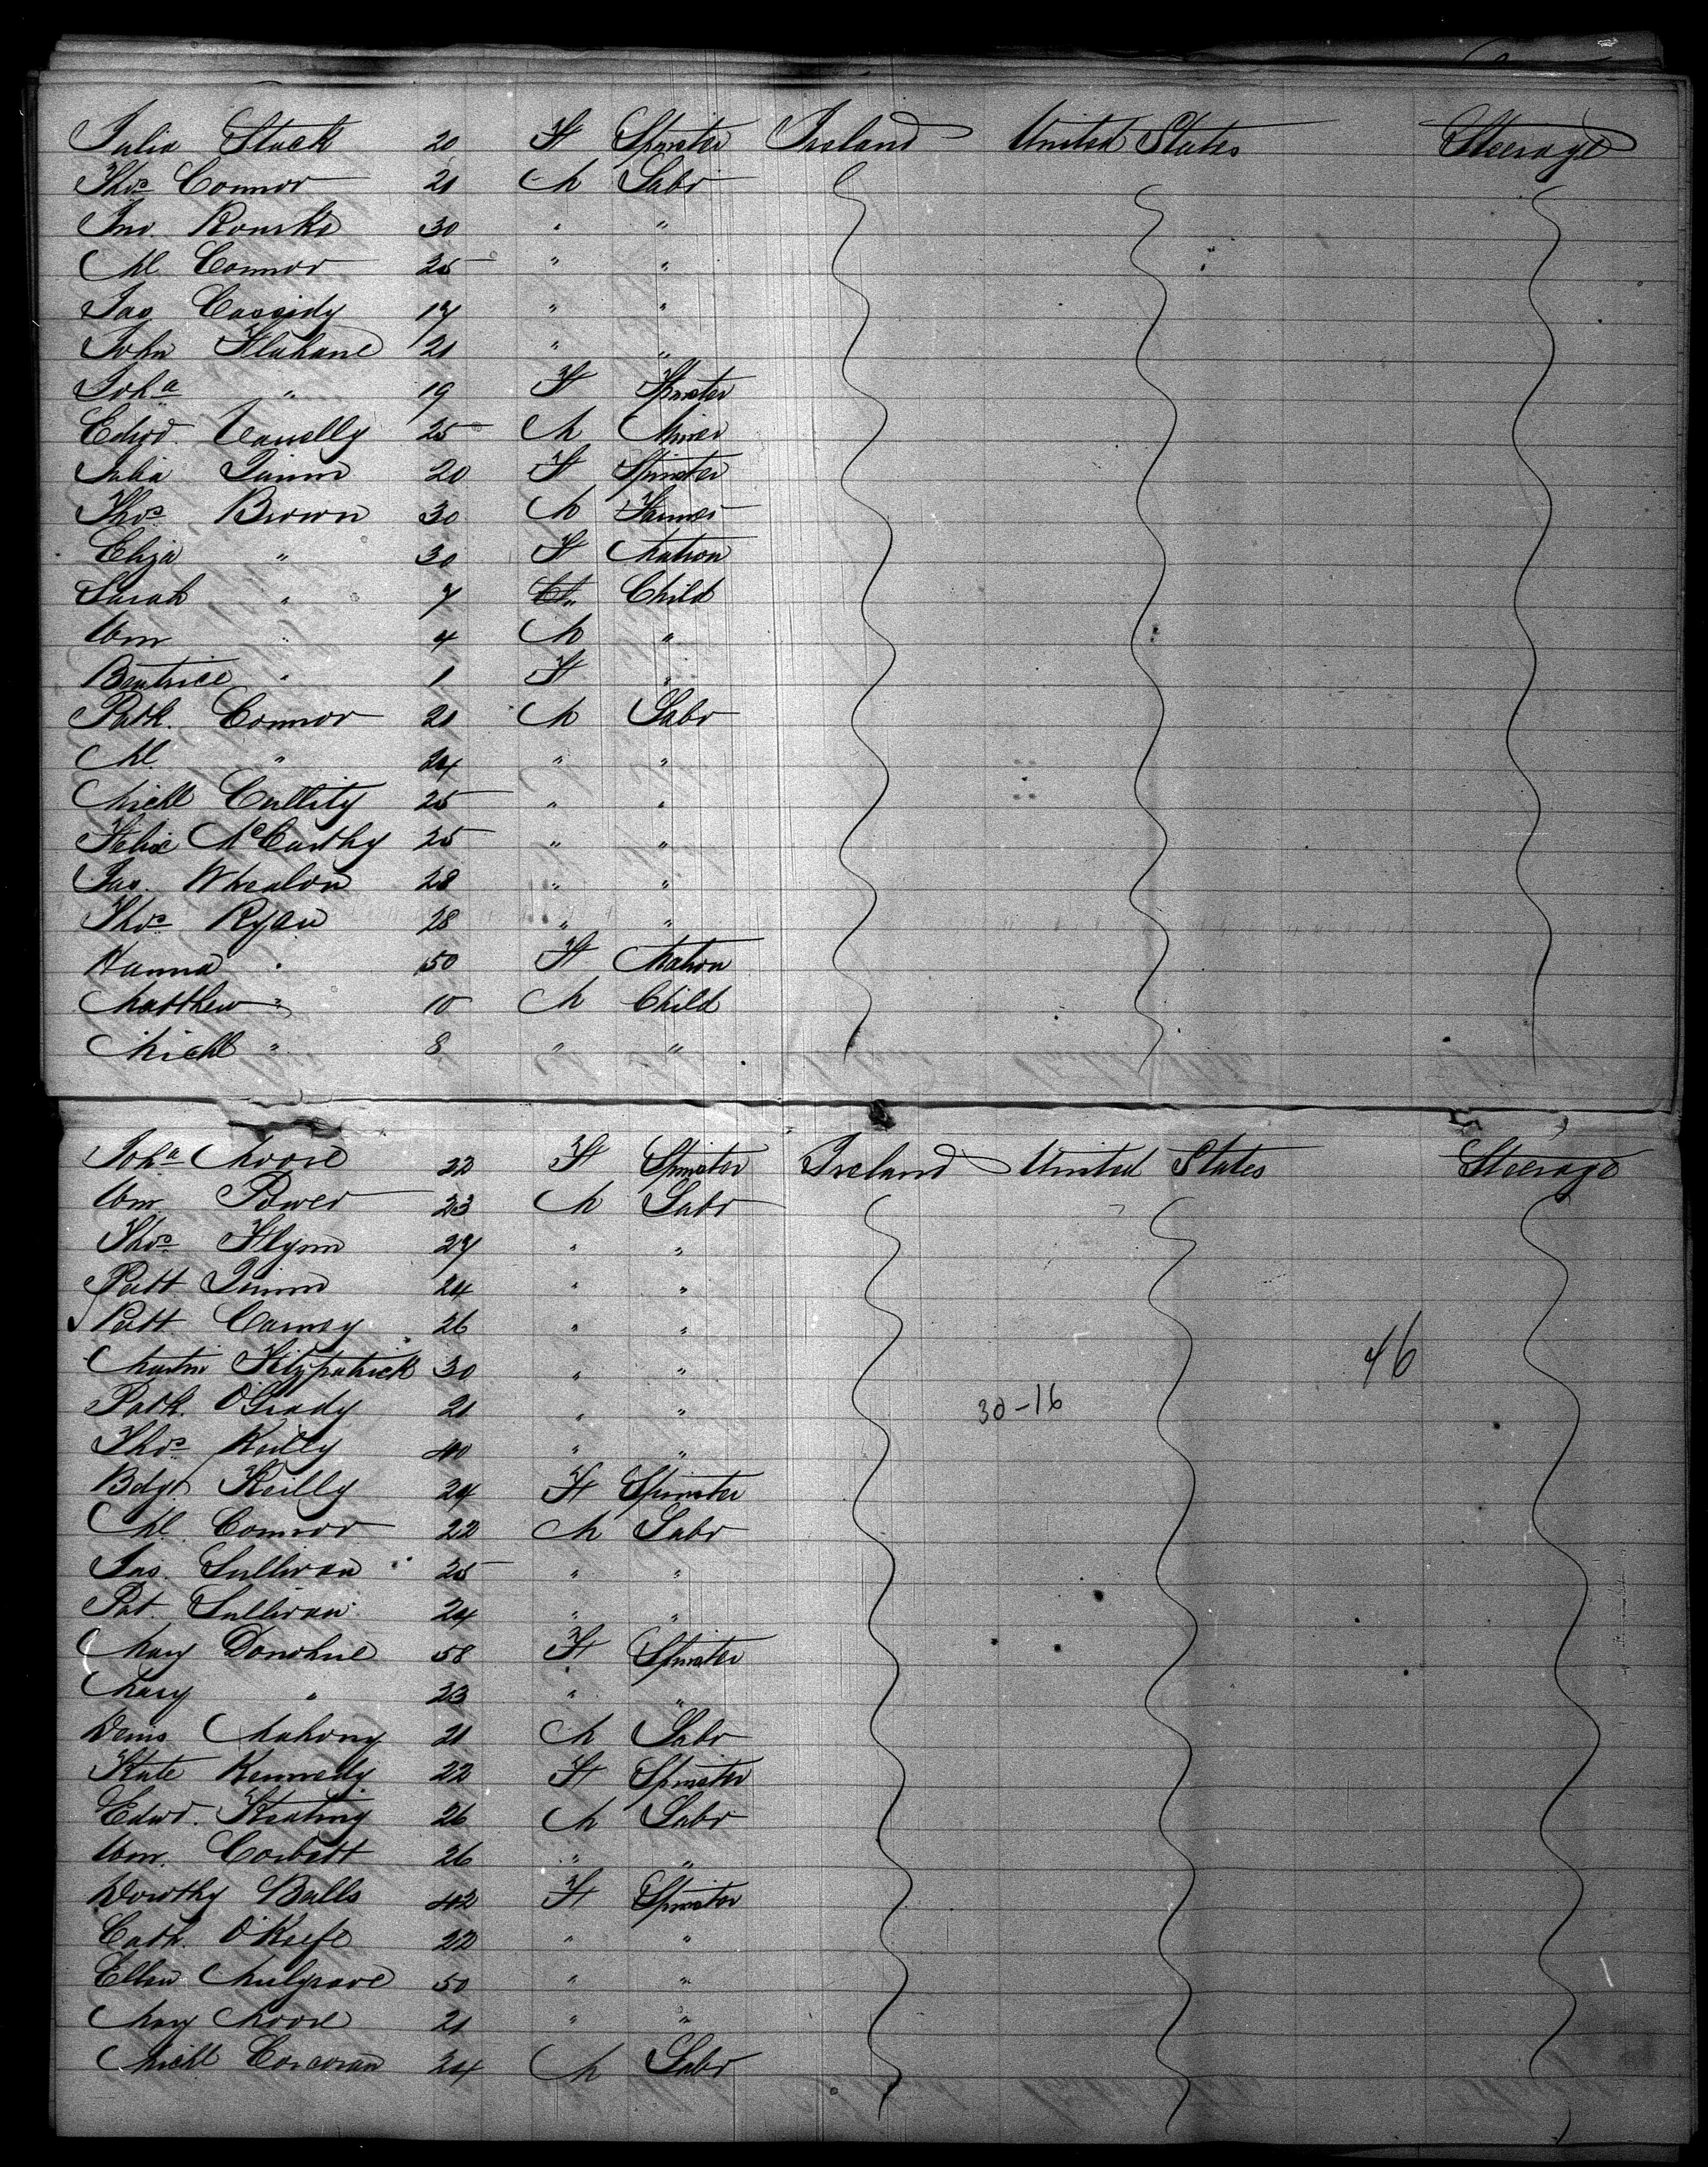 Julia Stack 20 F Spinster Ireland United States Steerage
Thos Connor 21 M Labr
Jno. Rourke 30 " "
Ml Connor 25 " "
Jas Cassidy 17 " "
John Flahane 21 " "
Joha " 19 F Spinster
Edwd. 25 M Miner
Julia Quinn 20 F Spinster
Thos Brown 30 M Farmer
Eliza " 30 F Matron
Sarah " 7 " Child
Wm " 4 M "
Beatrice " 1 F "
Patk. Connor 21 M Labr
Ml " 24 " "
Michl Cullity 25 " "
Felix McCarthy 25 " "
Jas. Whealon 28 " "
Thos Ryan 28 " "
Hanna " 50 F Matron
Matthew " 10 M Child
Michl " 8 " "
Joha Moore 22 F Spinster Ireland United States Steerage
Wm Power 23 M Labr
Thos Flynn 27 " "
Patt Quinn 24 " "
Patt Carney 26 " "
Martin Fitzpatrick 30 " " 46
Patk. O'Grady 21 " " 30-16
Thos Reilly 40 " "
Bdgt Reilly 24 F Spinster
Ml Connor 22 M Labr
Jas. Sullivan 25 " "
Pat. Sullivan 24 " "
Mary Donohue 58 F Spinster
Mary " 23 " "
Denis Mahony 21 M Labr
Kate Kennedy 22 F Spinster
Edwd. Keating 26 M Labr
Wm. Corbett 26 " "
Dorothy Balls 42 F Spinster
Cath. O'Keefe 22 " "
Ellen Mulgrave 50 " "
Mary Moore 21 " "
Michl Corcoran 24 M Labr